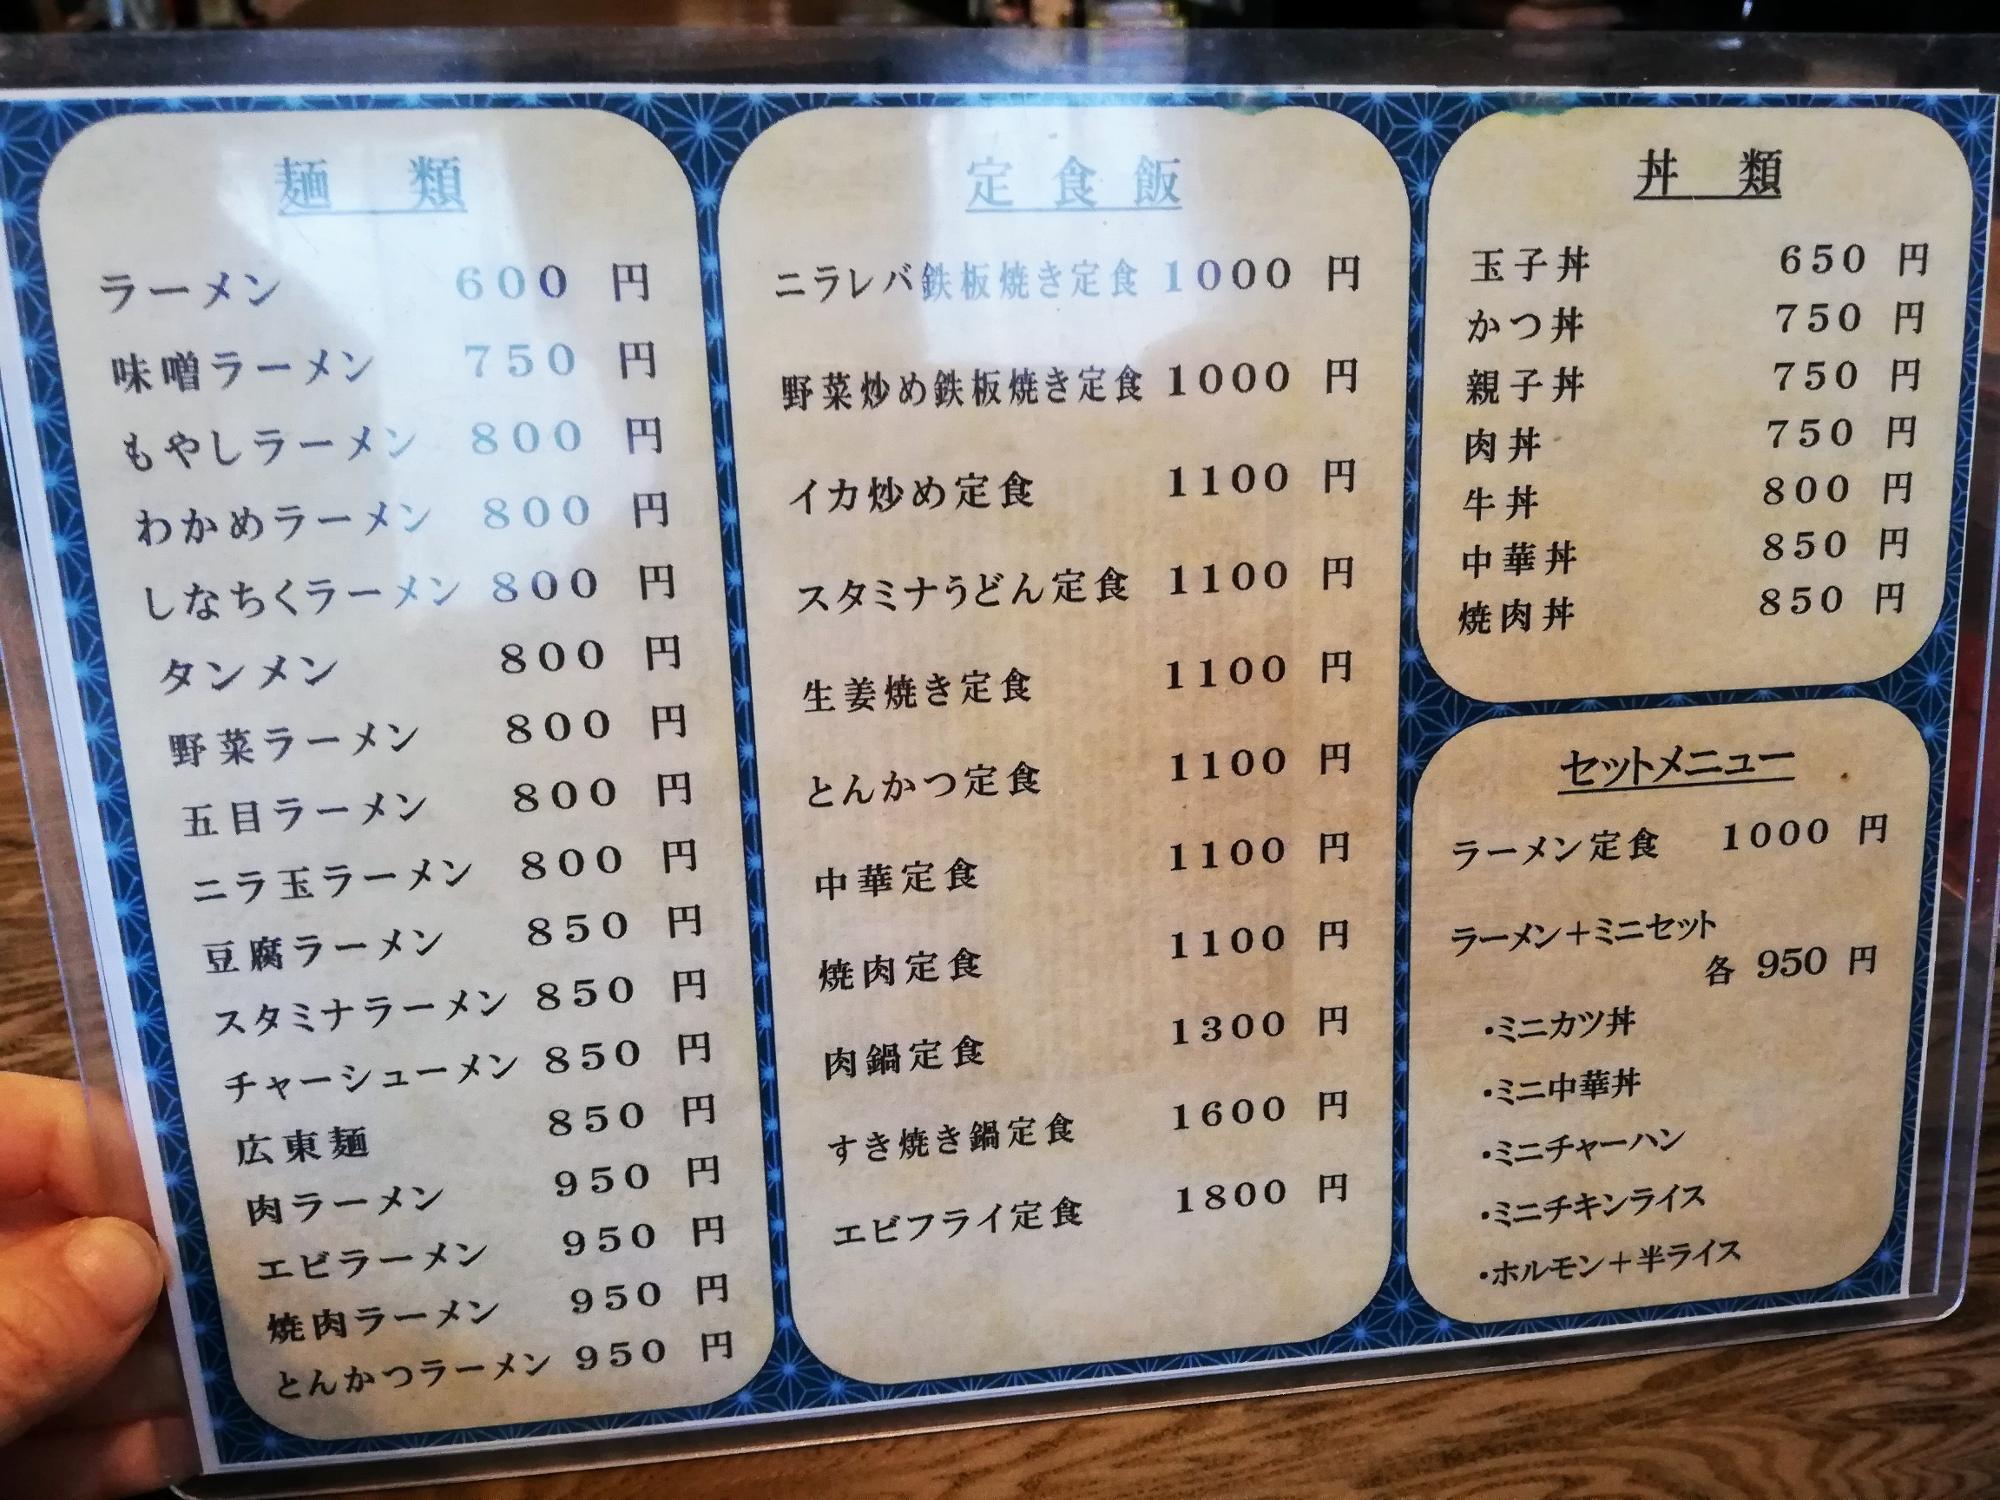 麺類
ラーメン 600 円
味噌ラーメン 750 円
もやしラーメン 800 円
わかめラーメン 800 円
しなちくラーメン 800 円
タンメン 800 円
野菜ラーメン 800 円
五目ラーメン 800 円
ニラ玉ラーメン 800 円
豆腐ラーメン 850 円
スタミナラーメン 850 円
チャーシューメン 850 円
広東麺 850 円
肉ラーメン 950 円
エビラーメン 950 円
焼肉ラーメン 950 円
とんかつラーメン 950 円
定食飯
ニラレバ鉄板焼き定食 1000 円
野菜炒め鉄板焼き定食 1000 円
イカ炒め定食 1100 円
スタミナうどん定食 1100 円
生姜焼き定食 1100 円
とんかつ定食 1100 円
中華定食 1100 円
焼肉定食 1100 円
肉鍋定食 1300 円
すき焼き鍋定食 1600 円
エビフライ定食 1800 円
丼類
玉子丼 650 円
かつ丼 750 円
親子丼 750 円
肉丼 750 円
牛丼 800 円
中華丼 850 円
焼肉丼 850 円
セットメニュー
ラーメン定食 1000 円
ラーメン＋ミニセット
各 950 円
・ミニカツ丼
・ミニ中華丼
・ミニチャーハン
・ミニチキンライス
・ホルモン＋半ライス